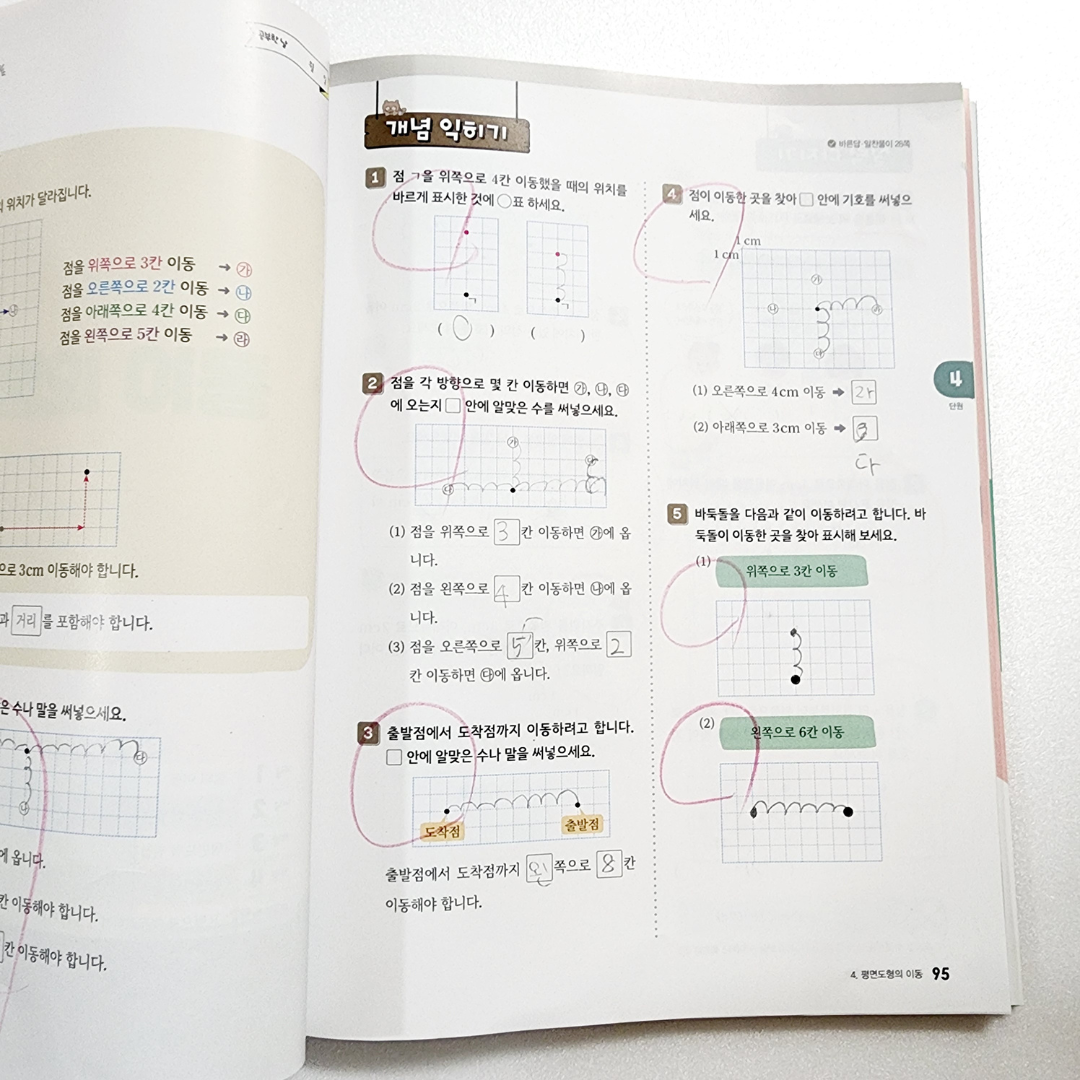 공부한 날
월
위치가 달라집니다.
점을 위쪽으로 3칸 이동 → ㉮
점을 오른쪽으로 2칸 이동 → ㉯
점을 아래쪽으로 4칸 이동 → ㉰
점을 왼쪽으로 5칸 이동 → ㉱
으로 3cm 이동해야 합니다.
과 거리 를 포함해야 합니다.
은 수나 말을 써넣으세요.
㉰
㉯
에 옵니다.
칸 이동해야 합니다.
칸 이동해야 합니다.
개념 익히기
바른답·알찬풀이 26쪽
1 점 ㄱ을 위쪽으로 4칸 이동했을 때의 위치를
바르게 표시한 것에 ○표 하세요.
ㄱ
ㄱ
( ○ ) ( )
2 점을 각 방향으로 몇 칸 이동하면 ㉮, ㉯, ㉰
에 오는지 □ 안에 알맞은 수를 써넣으세요.
㉮
㉰
㉯
(1) 점을 위쪽으로 3 칸 이동하면 ㉮에 옵
니다.
(2) 점을 왼쪽으로 4 칸 이동하면 ㉯에 옵
니다.
(3) 점을 오른쪽으로 5 칸, 위쪽으로 2
칸 이동하면 ㉰에 옵니다.
3 출발점에서 도착점까지 이동하려고 합니다.
□ 안에 알맞은 수나 말을 써넣으세요.
도착점 출발점
출발점에서 도착점까지 왼 쪽으로 8 칸
이동해야 합니다.
4 점이 이동한 곳을 찾아 □ 안에 기호를 써넣으
세요.
1 cm
1 cm
㉮
㉯ ㉱
㉰
(1) 오른쪽으로 4cm 이동 ➡ 라
(2) 아래쪽으로 3cm 이동 ➡ 3
다
5 바둑돌을 다음과 같이 이동하려고 합니다. 바
둑돌이 이동한 곳을 찾아 표시해 보세요.
(1) 위쪽으로 3칸 이동
(2) 왼쪽으로 6칸 이동
4
단원
4. 평면도형의 이동 95